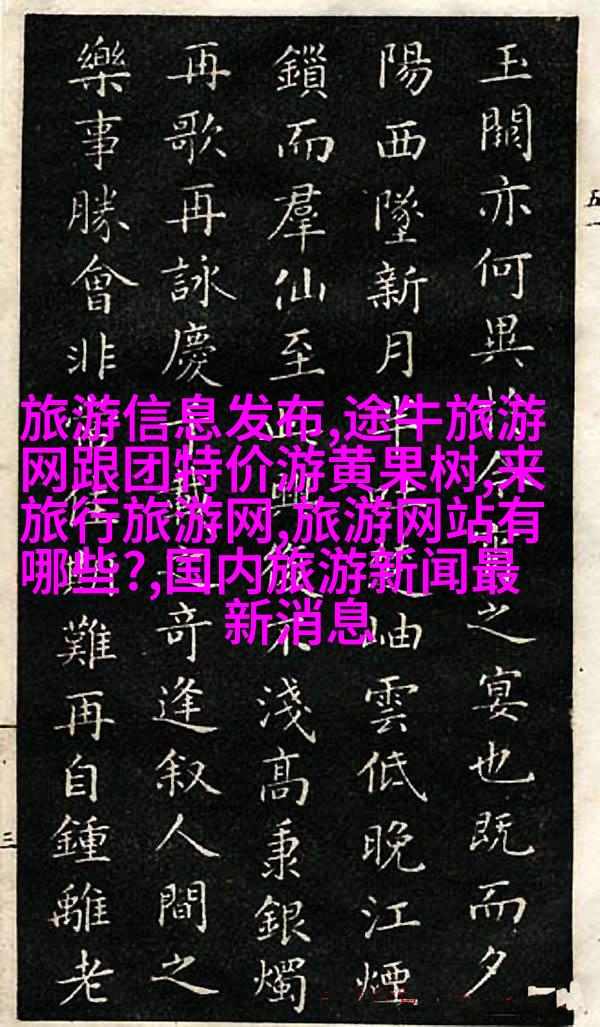 玉闕亦何異之宴也既而夕
陽西墜新月半岫雲低晚江煙
鎖而羣仙至興不淺高秉銀燭
再歌再詠慶奇逢叙人間之
樂事勝會非難再自鍾離老
旅游信息发布,途牛旅游
网跟团特价游黄果树,来
旅行旅游网,旅游网站有
哪些?,国内旅游新闻最
新消息
三